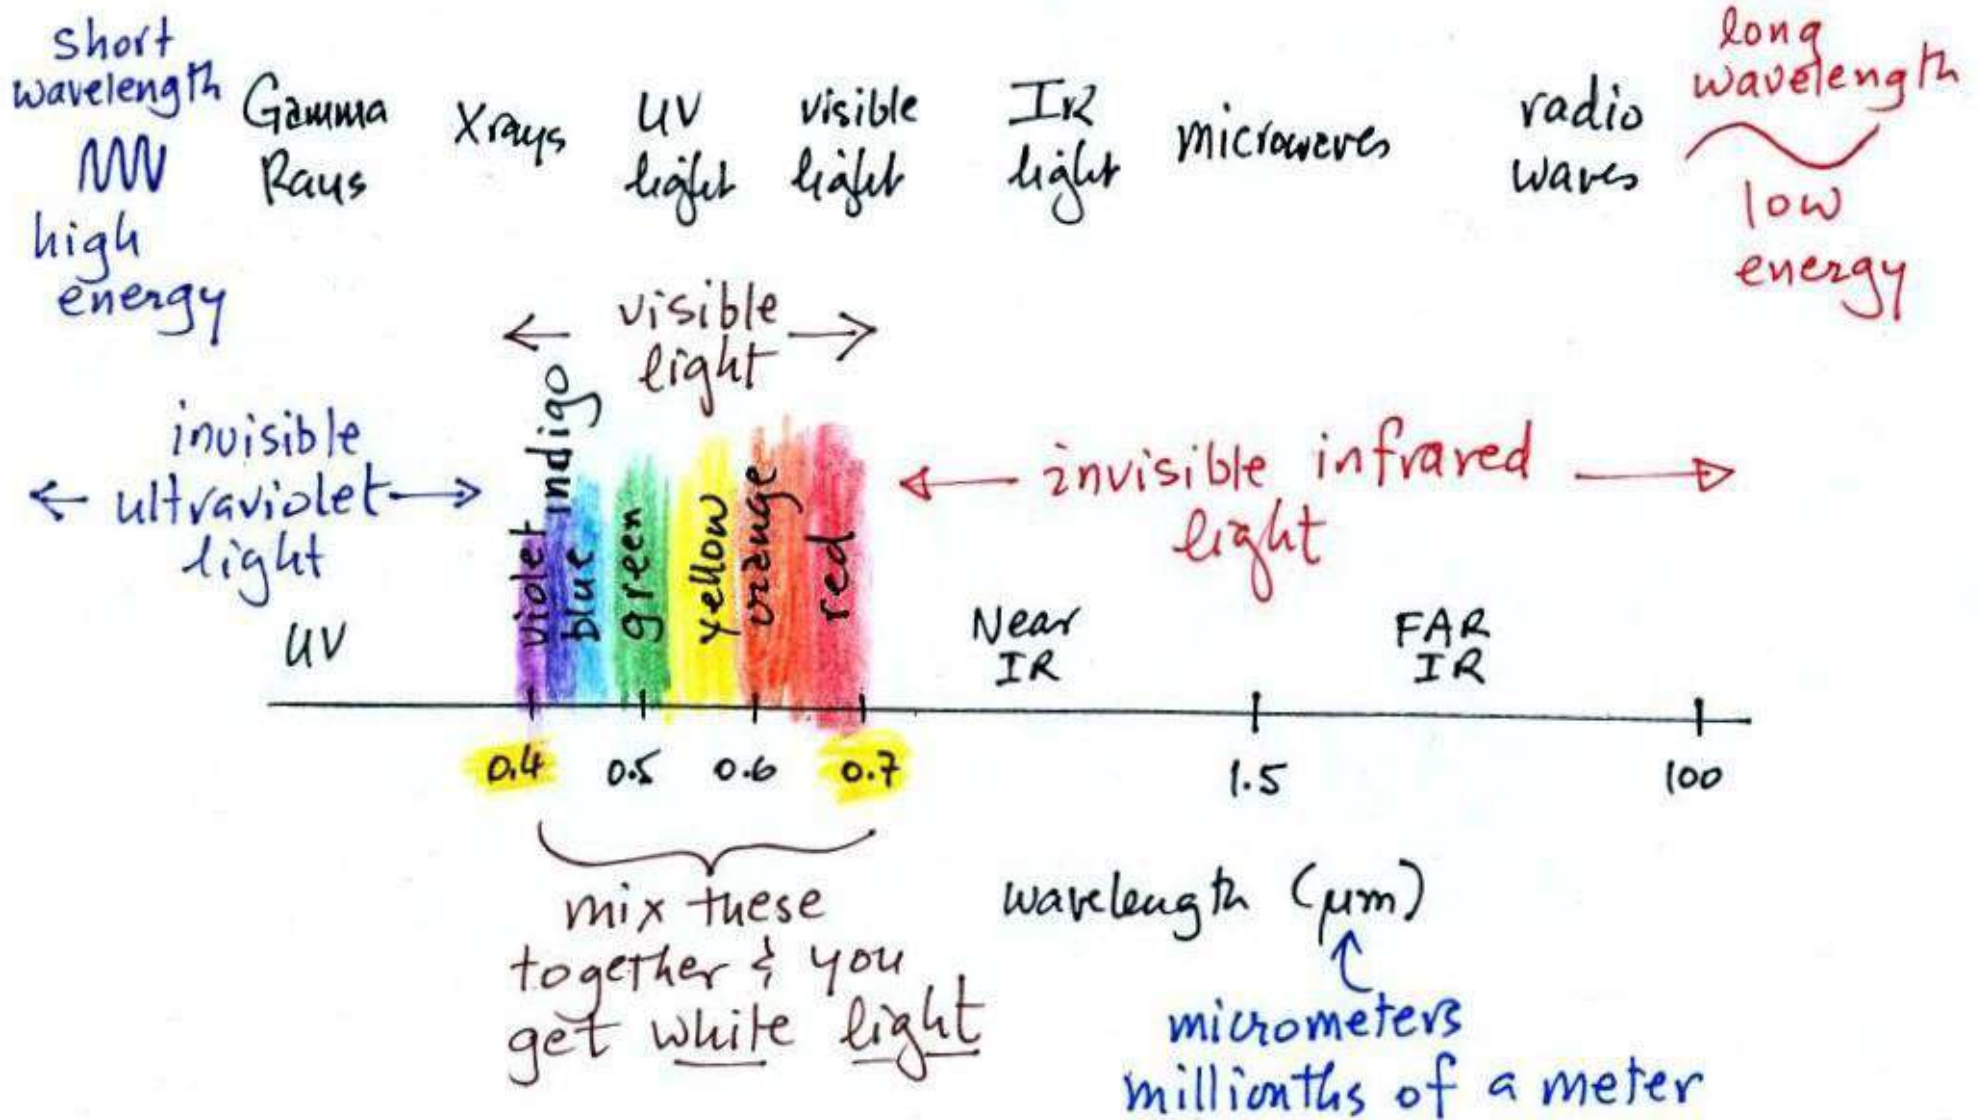 short
wavelength
high
energy
Gamma
Rays
Xrays
UV
light
visible
light
IR
light
microwaves
radio
waves
long
wavelength
low
energy
visible
light
invisible
ultraviolet
light
UV
violet
indigo
blue
green
yellow
orange
red
invisible infrared
light
Near
IR
FAR
IR
0.4 0.5 0.6 0.7 1.5 100
mix these
together & you
get white light
wavelength (μm)
micrometers
millionths of a meter